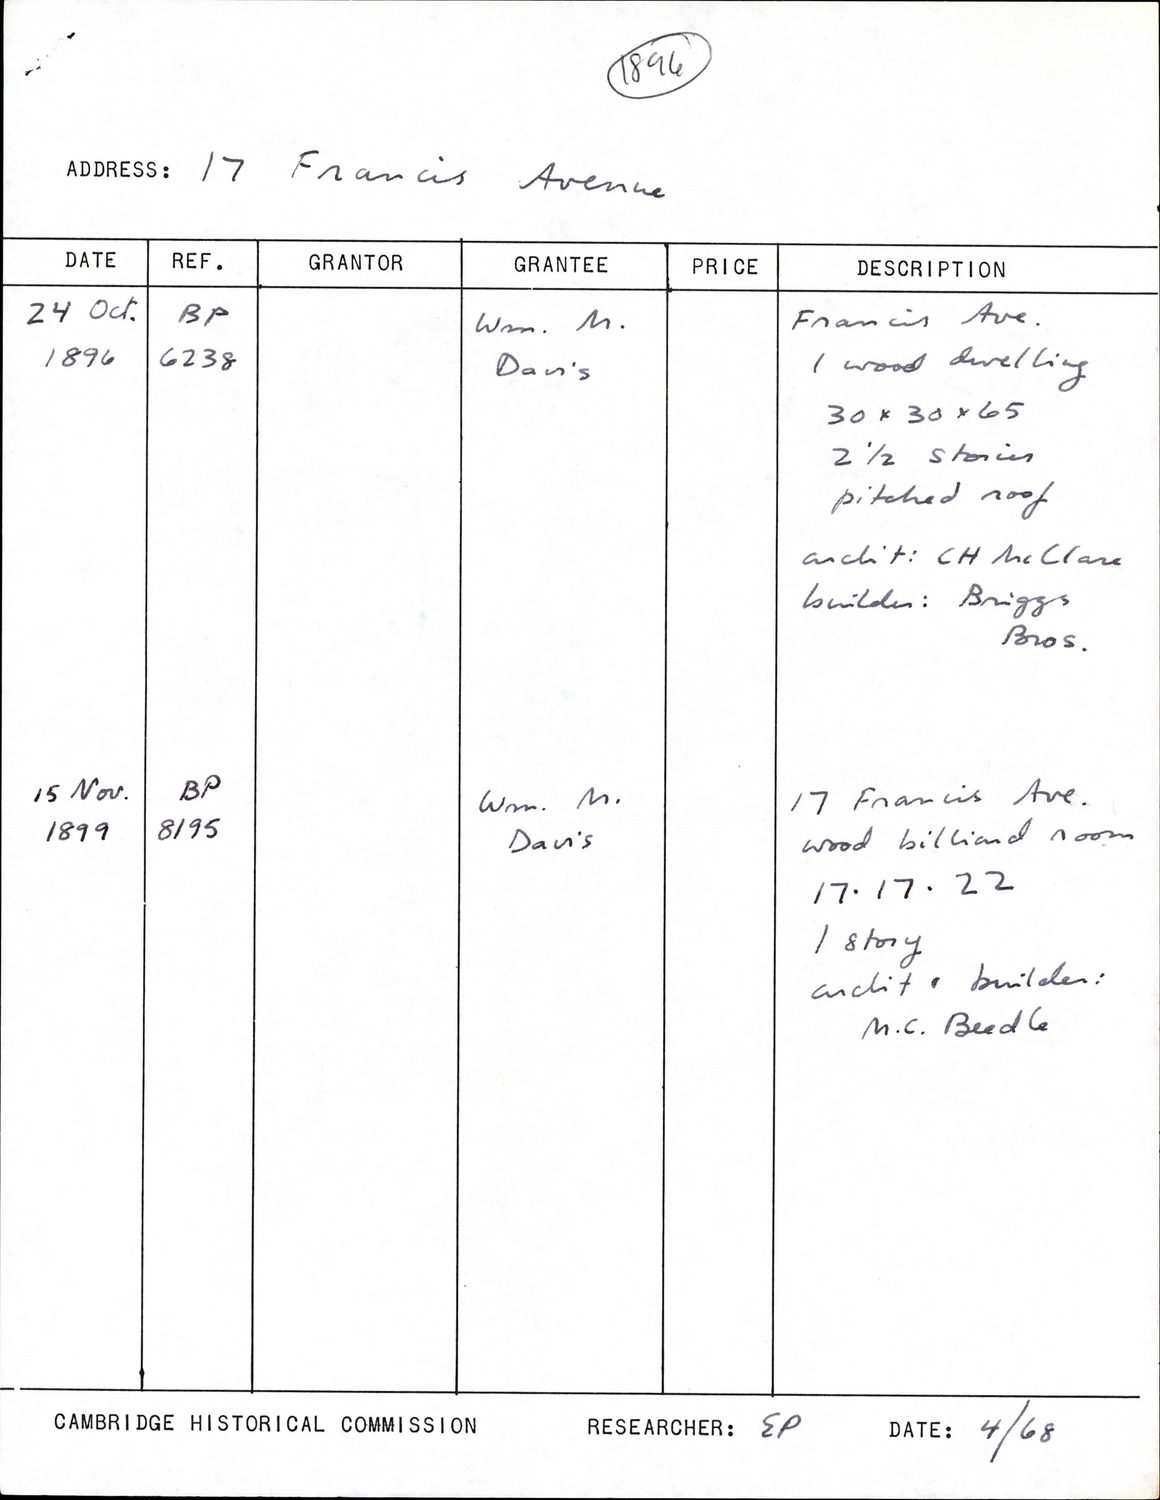 1896
ADDRESS: 17 Francis Avenue
DATE REF. GRANTOR GRANTEE PRICE DESCRIPTION
24 Oct. BP Wm. M. Francis Ave.
1896 6238 Davis 1 wood dwelling
30 x 30 x 65
2 1/2 stories
pitched roof
archit: CH McClare
builder: Briggs
Bros.
15 Nov. BP Wm. M. 17 Francis Ave.
1899 8195 Davis wood billiard room
17 · 17 · 22
1 story
archit + builder:
M.C. Beedle
CAMBRIDGE HISTORICAL COMMISSION RESEARCHER: EP DATE: 4/68